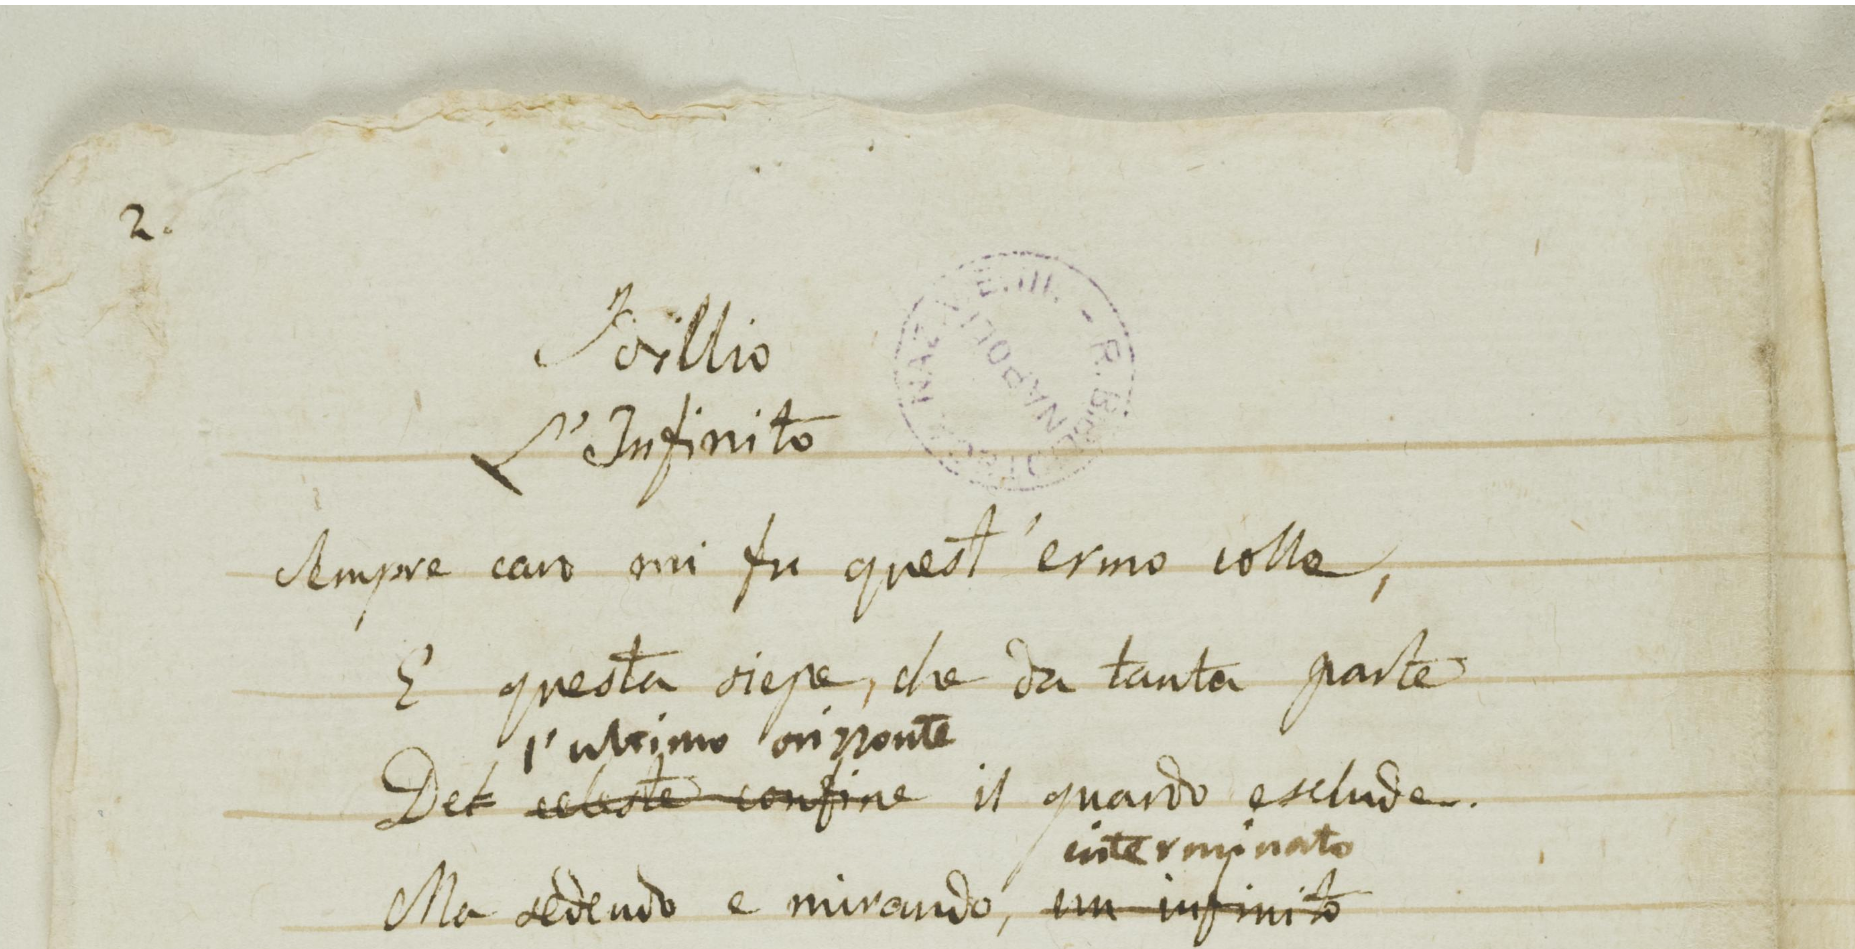 2.
Idillio
L'Infinito
R. BIBLIOTECA NAZ. V. E. III. - NAPOLI
Sempre caro mi fu quest'ermo colle,
E questa siepe, che da tanta parte
l'ultimo orizzonte
Del celeste confine il guardo esclude.
interminato
Ma sedendo e mirando, un infinito